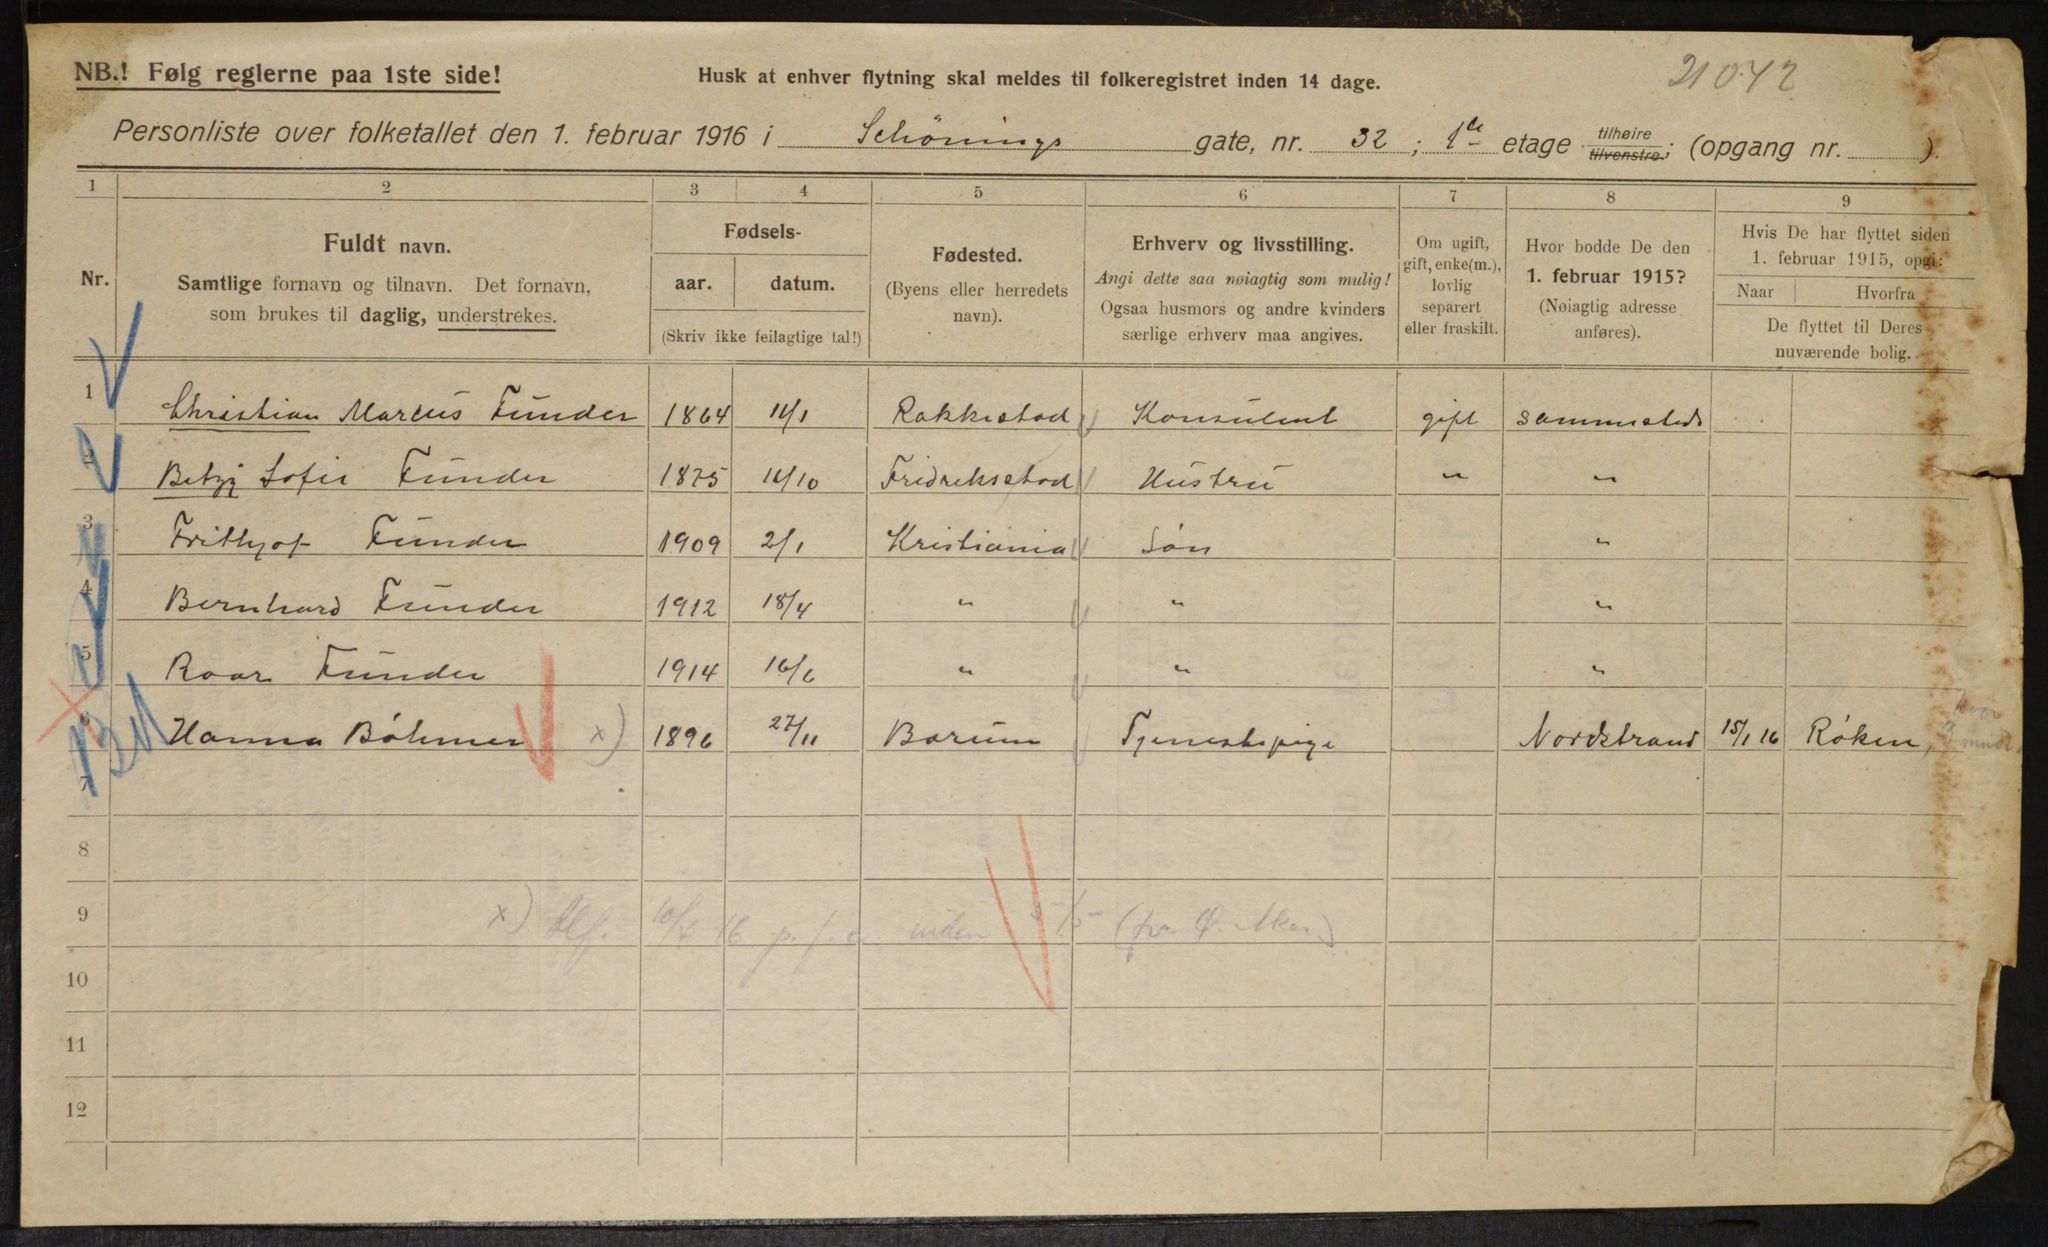 21042
NB.! Følg reglerne paa 1ste side!
Husk at enhver flytning skal meldes til folkeregistret inden 14 dage.
Personliste over folketallet den 1. februar 1916 i Schønings gate, nr. 32; 1ste etage tilhøire tilvenstre; (opgang nr. ).
1 2 3 4 5 6 7 8 9
Nr.
Fuldt navn.
Samtlige fornavn og tilnavn. Det fornavn,
som brukes til daglig, understrekes.
Fødsels-
aar. datum.
(Skriv ikke feilagtige tal!)
Fødested.
(Byens eller herredets
navn).
Erhverv og livsstilling.
Angi dette saa nøiagtig som mulig!
Ogsaa husmors og andre kvinders
særlige erhverv maa angives.
Om ugift,
gift, enke(m.),
lovlig
separert
eller fraskilt.
Hvor bodde De den
1. februar 1915?
(Nøiagtig adresse
anføres).
Hvis De har flyttet siden
1. februar 1915, opgi:
Naar Hvorfra
De flyttet til Deres
nuværende bolig.
1 Christian Marcus Funder 1864 11/1 Rakkestad Konsulent gift sammesteds
2 Betzy Sofie Funder 1875 11/10 Fridrikstad Hustru " "
3 Frithjof Funder 1909 2/1 Kristiania Søn "
4 Bernhard Funder 1912 18/4 " " "
5 Roar Funder 1914 16/6 " " "
6 Hanna Bøhmer x) 1896 27/11 Barum Tjenestepige Nordstrand 15/1 16 Røken,
7
8
9 x)
10
11
12